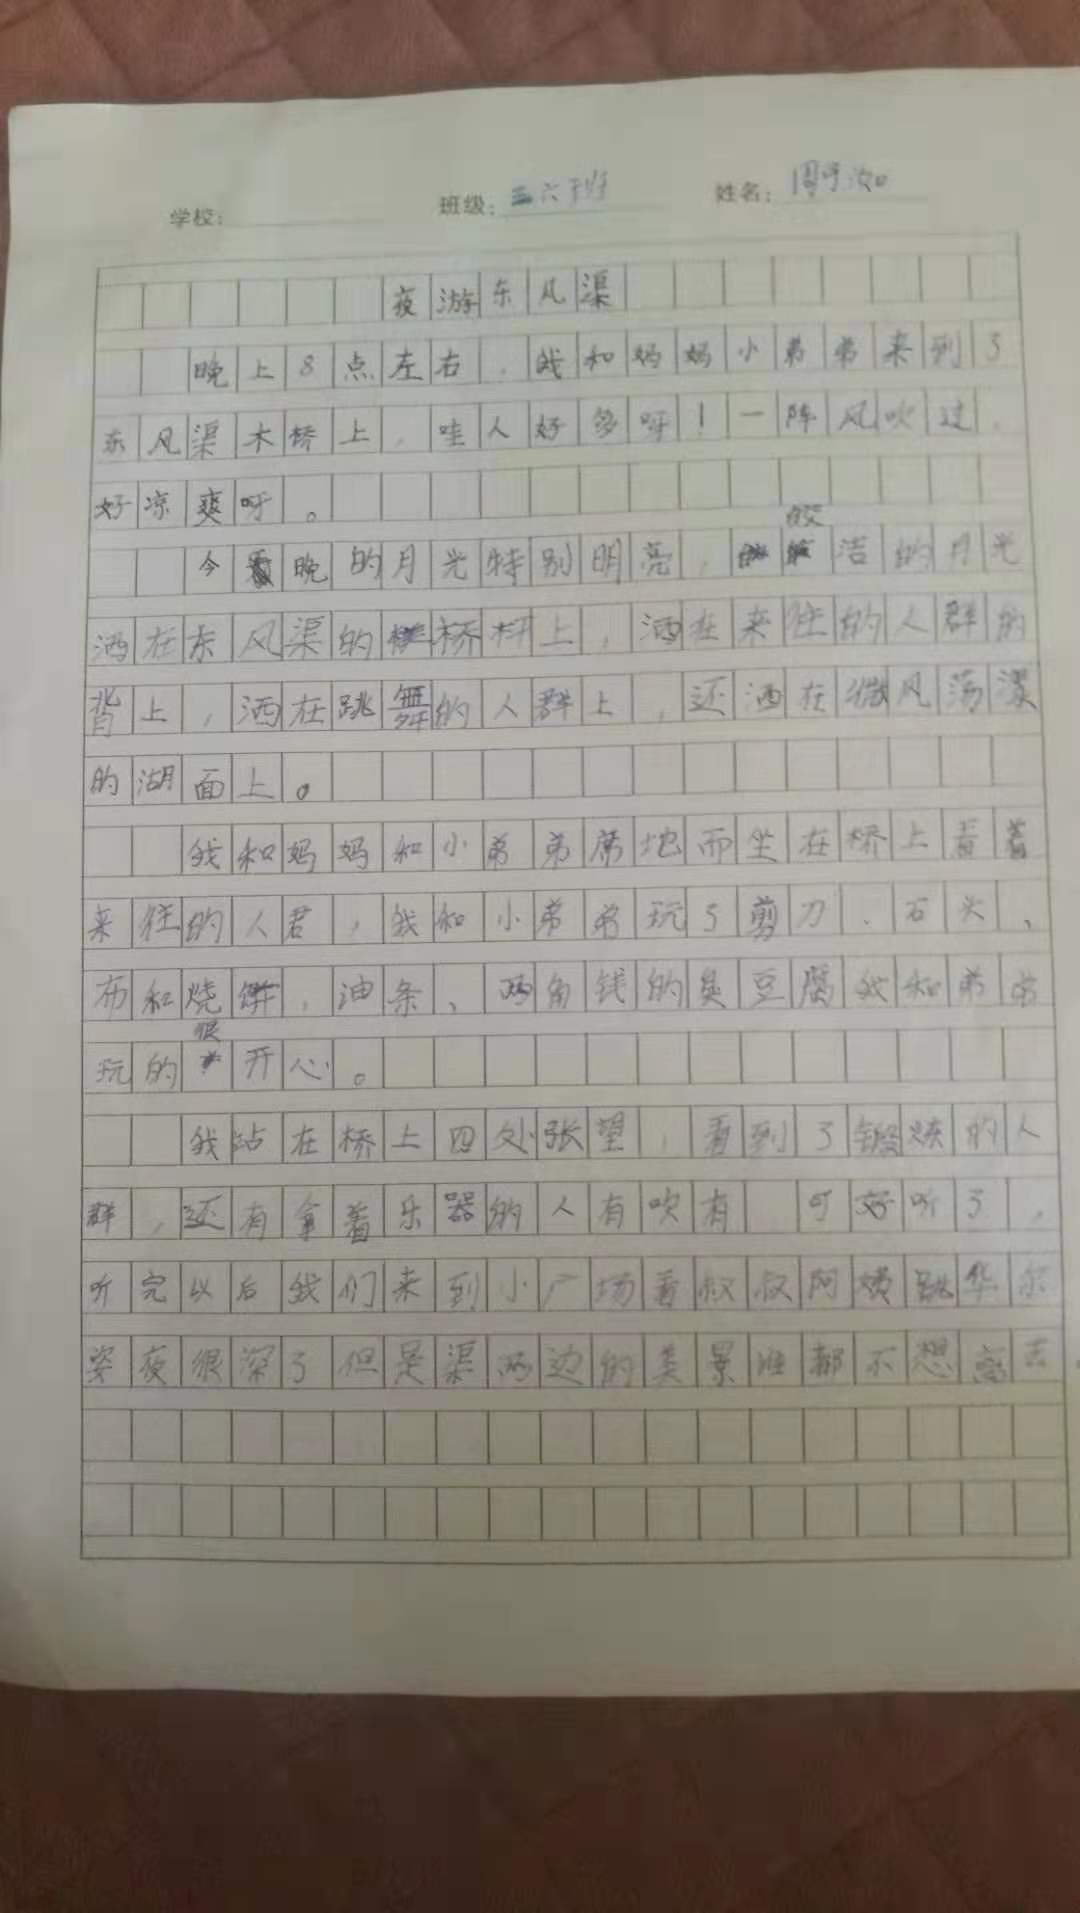 学校： 班级：三六班 姓名：周
夜游东风渠
晚上8点左右，我和妈妈小弟弟来到了
东风渠木桥上，哇人好多呀！一阵风吹过，
好凉爽呀。
今晚的月光特别明亮，皎洁的月光
洒在东风渠的桥杆上，洒在来往的人群的
背上，洒在跳舞的人群上，还洒在微风荡漾
的湖面上。
我和妈妈和小弟弟席地而坐在桥上看着
来往的人君，我和小弟弟玩了剪刀、石头、
布和烧饼，油条、两角钱的臭豆腐我和弟弟
玩的很开心。
我站在桥上四处张望，看到了锻炼的人
群，还有拿着乐器的人有吹有 可好听了，
听完以后我们来到小广场看叔叔阿姨跳华尔
姿夜很深了但是渠两边的美景谁都不想离去。